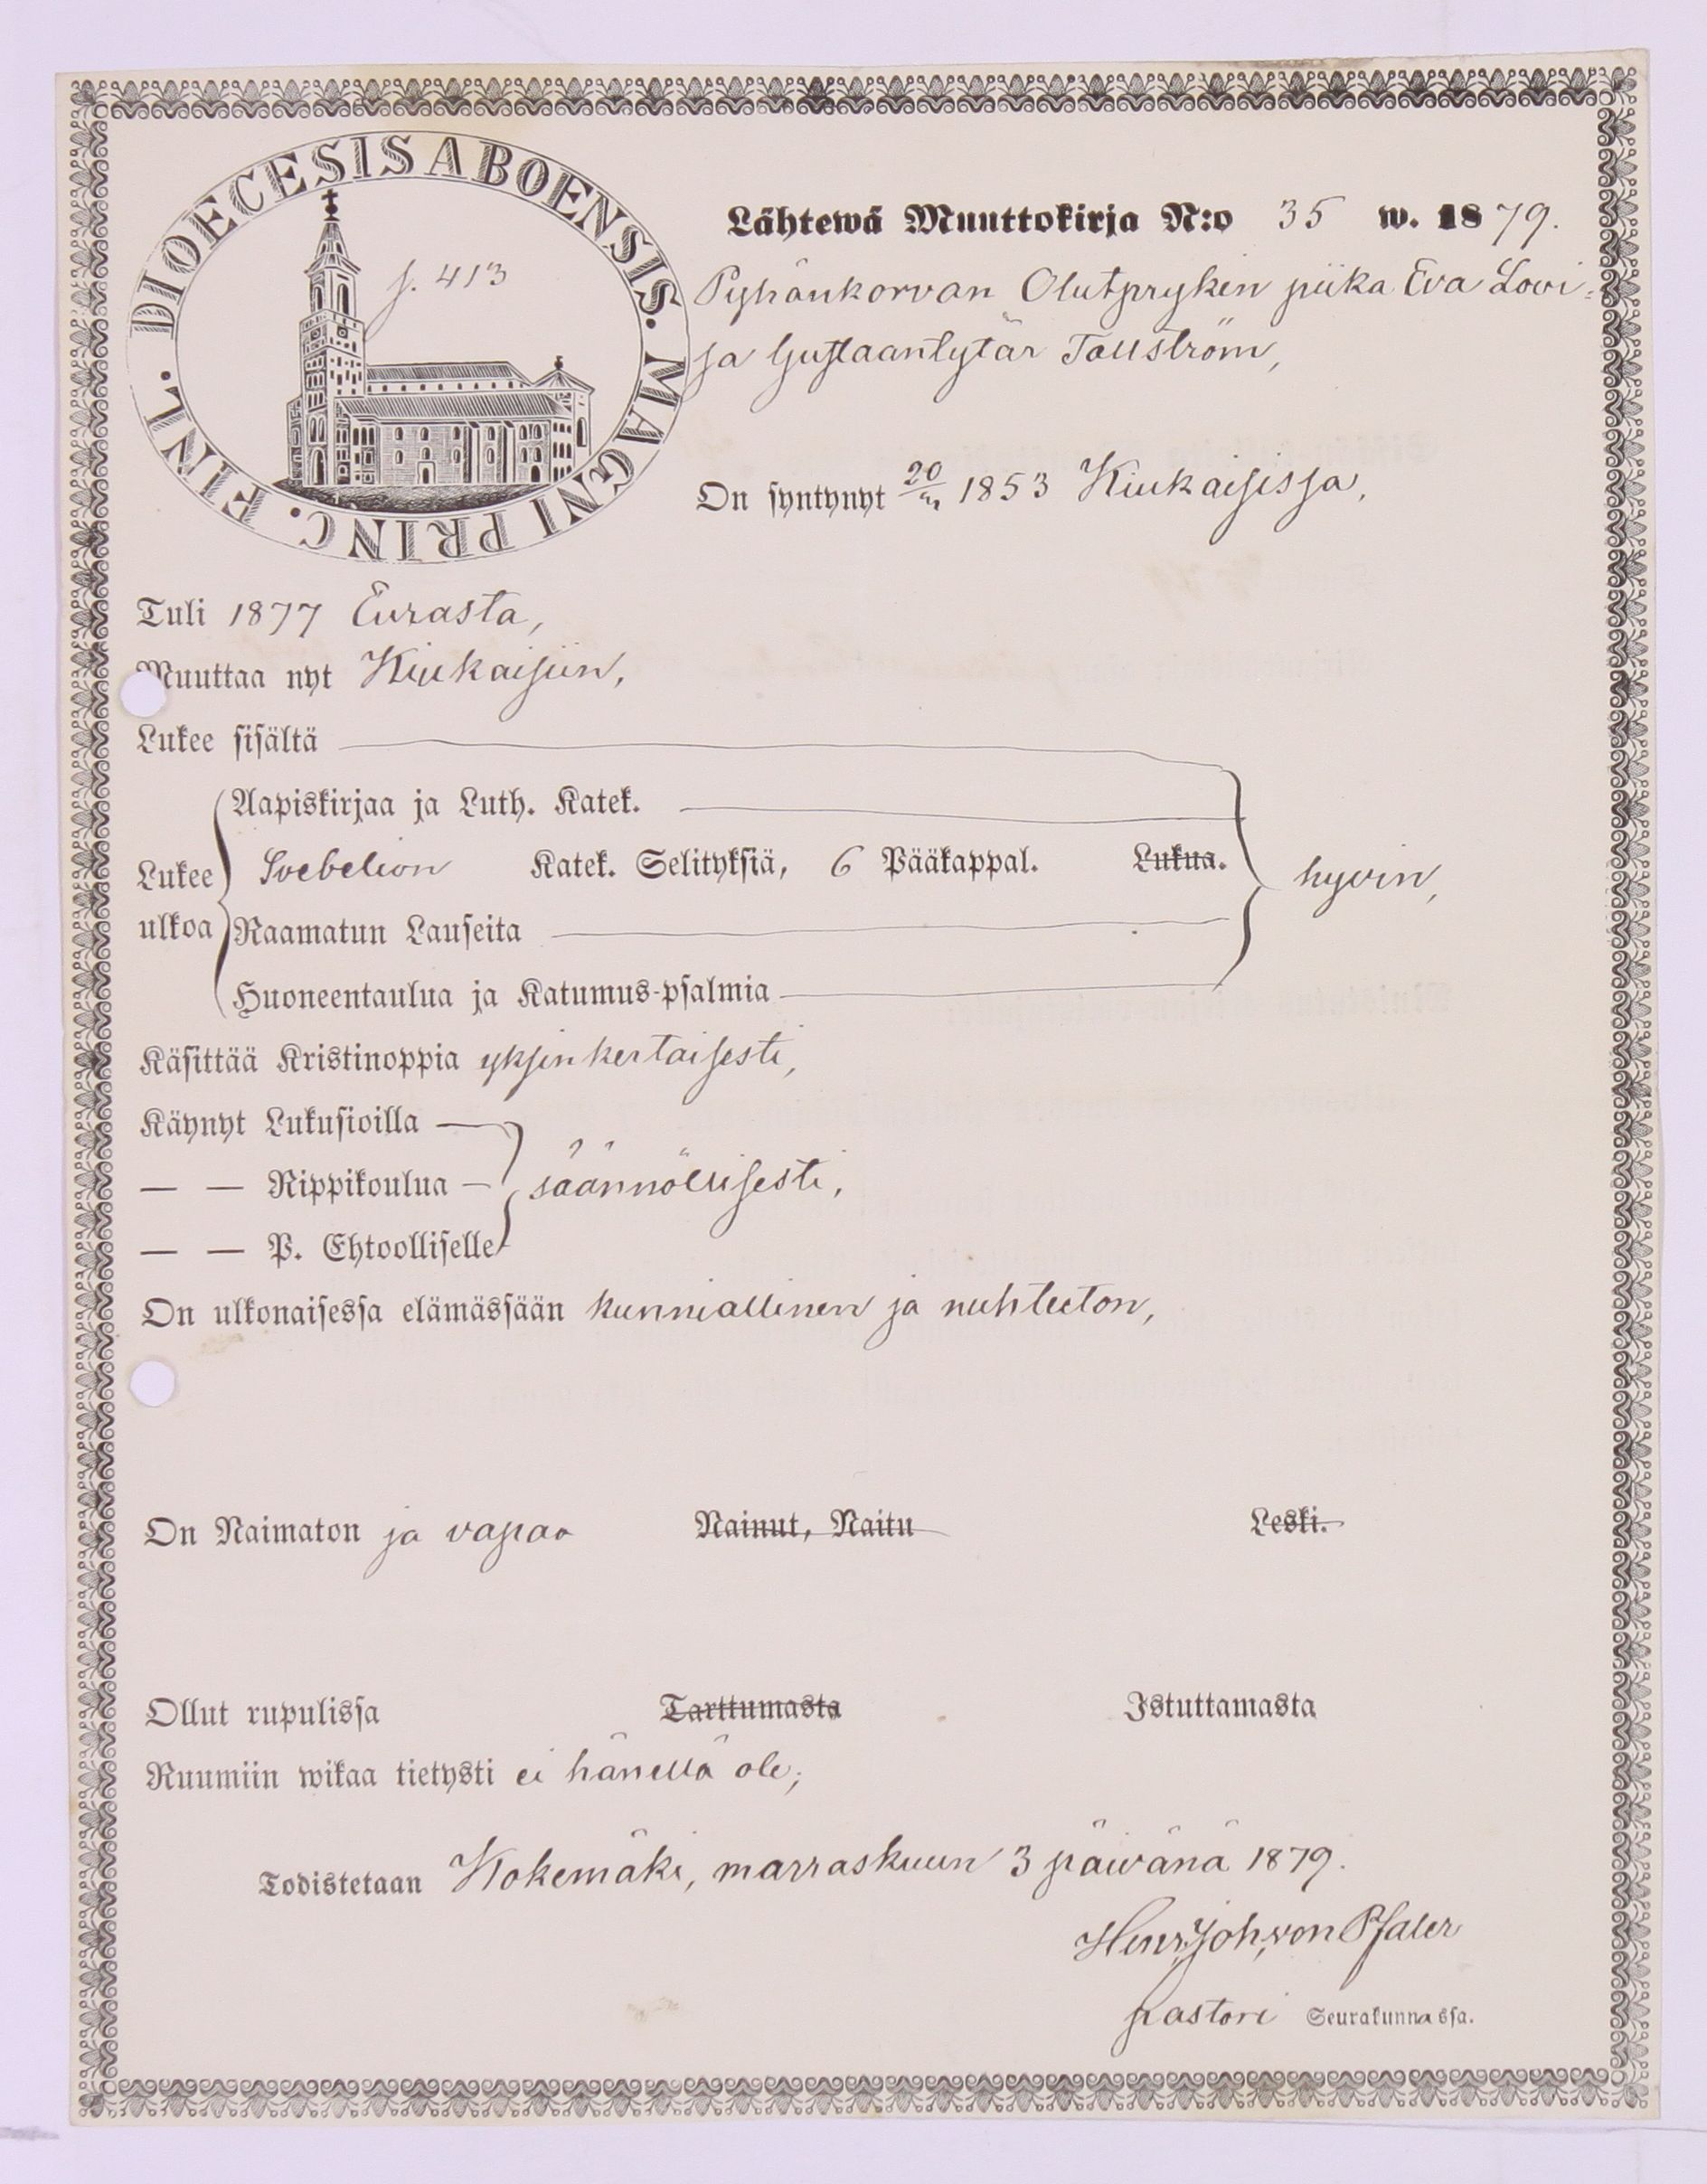 DIOECESIS ABOENSIS. MAGNI PRINC. FINL.
f. 413
Lähtewä Muuttokirja N:o 35 w. 1879.
Pyhänkorvan Olutprykin piika Eva Lovi=
sa Gustaantytär Tallström,
On syntynyt 20/ 1853 Kiukaisissa,
Tuli 1877 Eurasta,
Muuttaa nyt Kiukaisiin,
Lukee sisältä
Aapiskirjaa ja Luth. Katek.
Lukee Svebelion Katek. Selityksiä, 6 Pääkappal. Lukua. hyvin,
ulkoa Raamatun Lauseita
Huoneentaulua ja Katumus-psalmia
Käsittää Kristinoppia yksinkertaisesti,
Käynyt Lukusioilla
— — Rippikoulua säännöllisesti,
— — P. Ehtoolliselle
On ulkonaisessa elämässään kunniallinen ja nuhteeton,
On Naimaton ja vapaa Nainut, Naitu Leski.
Ollut rupulissa Tarttumasta Istuttamasta
Ruumiin wikaa tietysti ei hänellä ole;
Todistetaan Kokemäki, marraskuun 3 päivänä 1879.
Henr. Joh. von Pfaler
pastori Seurakunnassa.